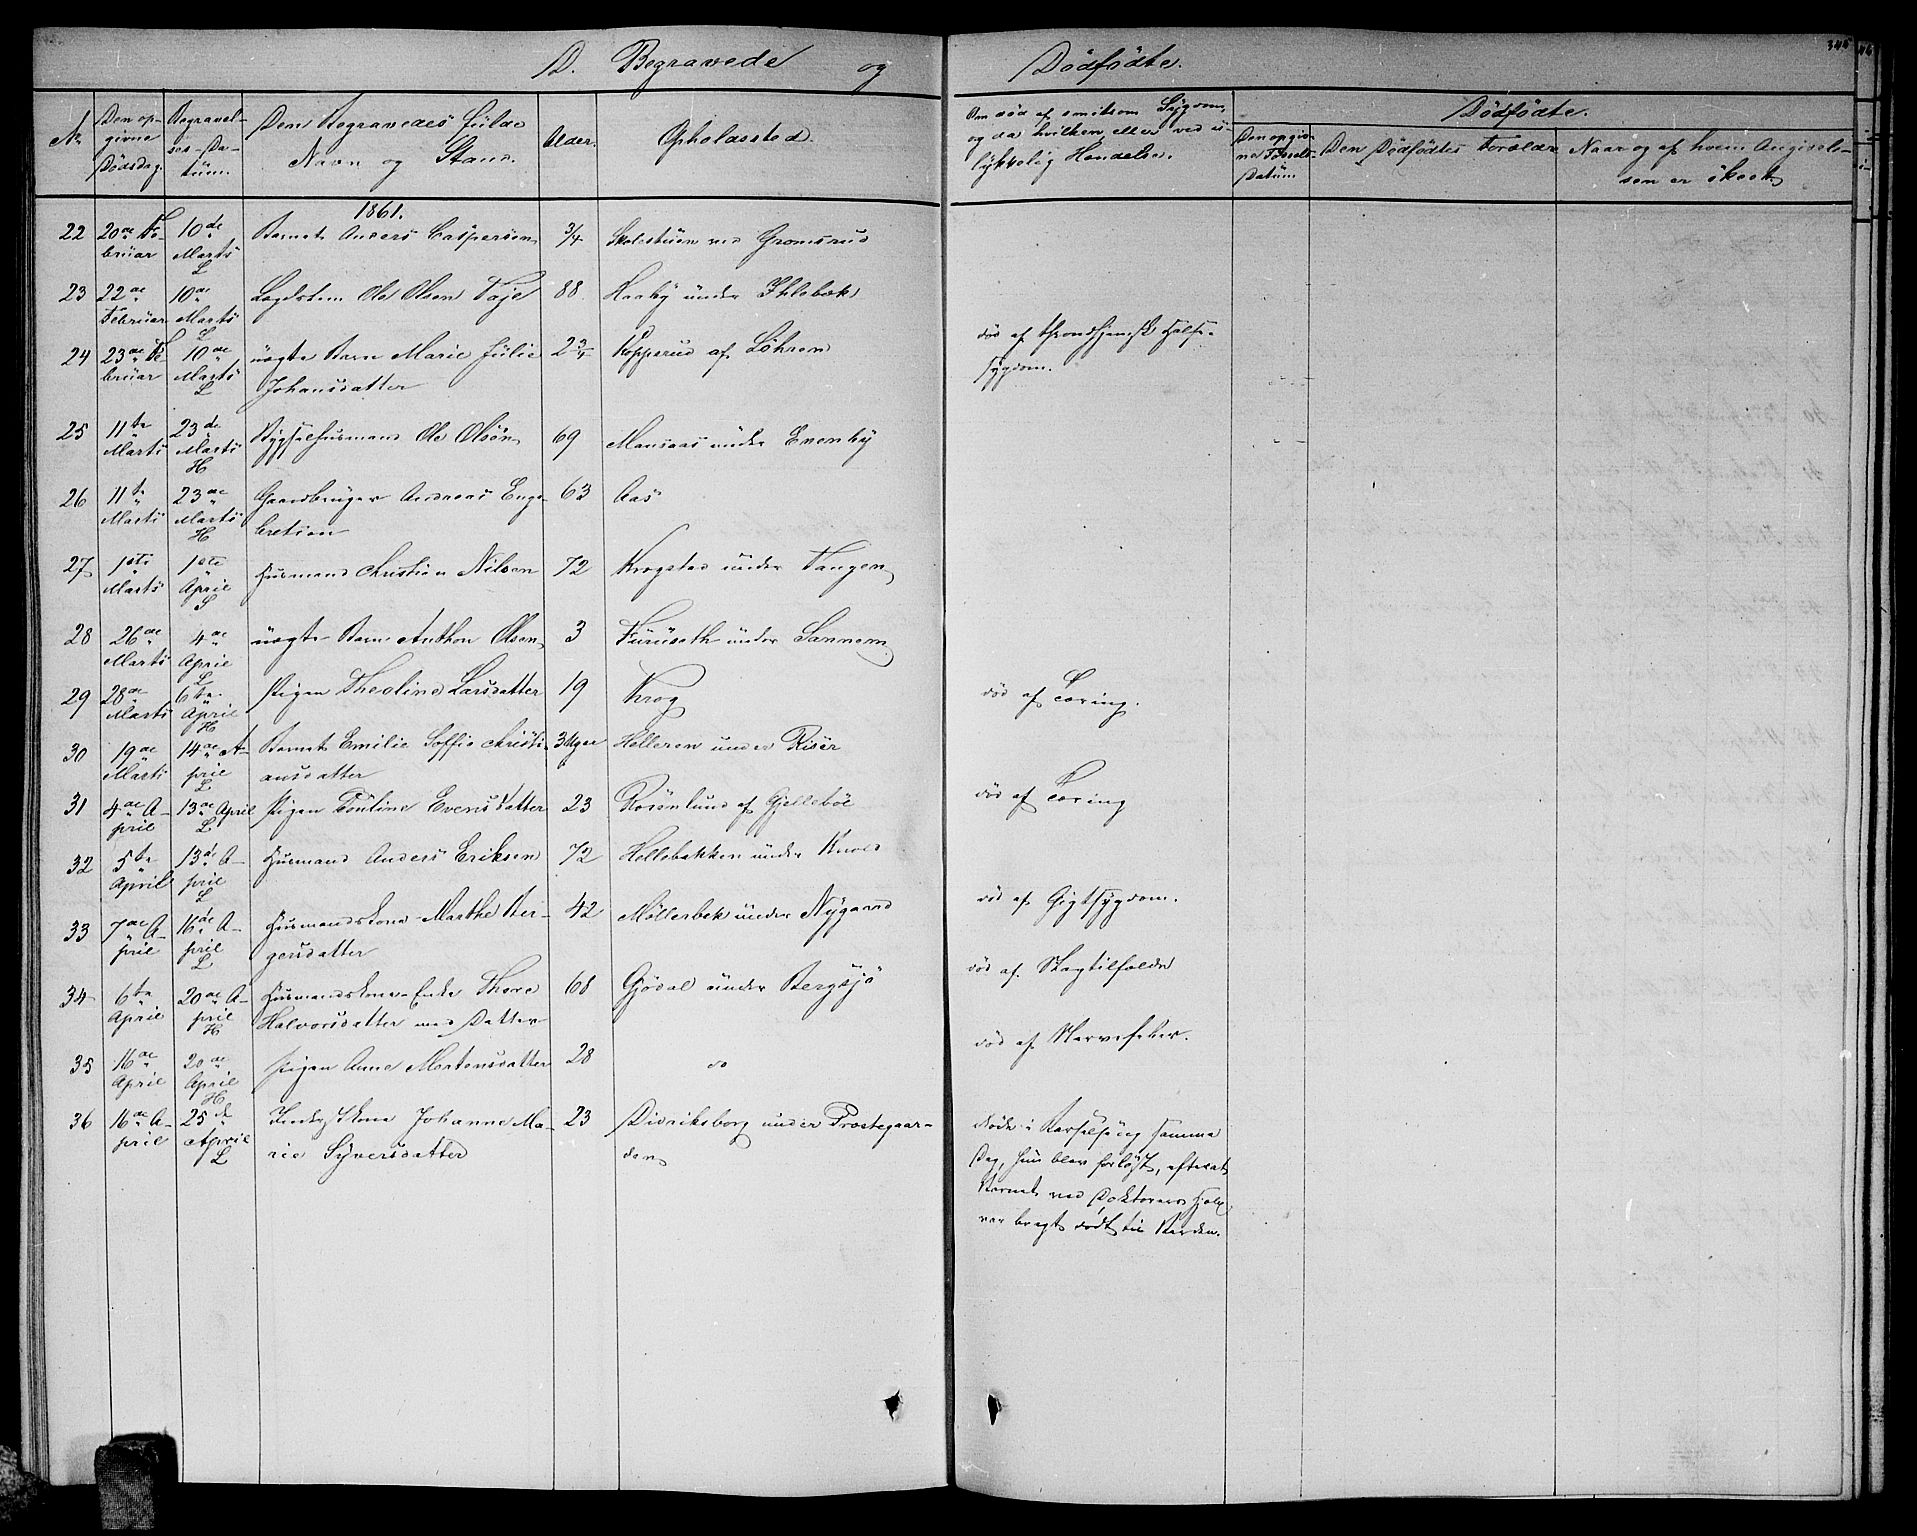 D. Begravede og Dødfødte.
345
No
Den opgivne Dødsdag.
Begravelses-Datum.
Den Begravedes fulde Navn og Stand.
Alder.
Opholdssted.
Om død af smitsom Sygdom, og da hvilken, eller ved ulykkelig Hendelse.
Dødfødte.
Den opgivne Fødsels Datum
Den Dødfødtes Forældre
Naar og af hvem Angivelsen er skeet.
1861.
22 20de Februar 10de Marts L Barnet Anders Caspersen 3/4 Skolestuen ved Gromsrud
23 22de Februar 10de Marts L Lægdslem Ole Olsen Vaje 88 Haaby under Ihlebæk
24 23de Februar 10de Marts L uægte Barn Marie Julie Johansdatter 2 3/4 Kopperud af Løhren død af throndhjemsk Halssygdom.
25 11te Marts 23de Marts H Bygselhusmand Ole Olsen 69 Monsaas under Evenby
26 11te Marts 23de Marts H Gaardbruger Andreas Engebretsen 63 Aas
27 1ste Marts 1ste April S Husmand Christian Nilsen 72 Krogstad under Tangen
28 26de Marts 4de April L uægte Barn Anthon Olsen 3 Furuseth under Sannem
29 28de Marts 6te April H Pigen Theoline Larsdatter 19 Krog død af Tæring.
30 19de Marts 14de April L Barnet Emilie Soffie Christiansdatter 3 Uger Helleren under Risør
31 4de April 13de April L Pigen Pouline Evensdatter 23 Rosenlund af Gjellebøl død af Tæring
32 5te April 13de April L Husmand Anders Eriksen 72 Hellebakken under Knold
33 7de April 16de April L Husmandskone Marthe Bergersdatter 42 Møllerbek under Nygaard død af Gigtsygdom.
34 6te April 20de April H Husmandskone-Enke Thore Halvorsdatter med Datter 68 Gjødal under Bergsjø død af Slagtilfælde
35 16de April 20de April H Pigen Anne Mortensdatter 28 do død af Nervefeber.
36 16de April 25de April L Inderstkone Johanne Marie Syversdatter 23 Didriksborg under Prestegaarden døde i Barselseng samme Dag, hun blev forløst, efterat Barnet ved Doktorens Hjelp var bragt dødt til Verden.